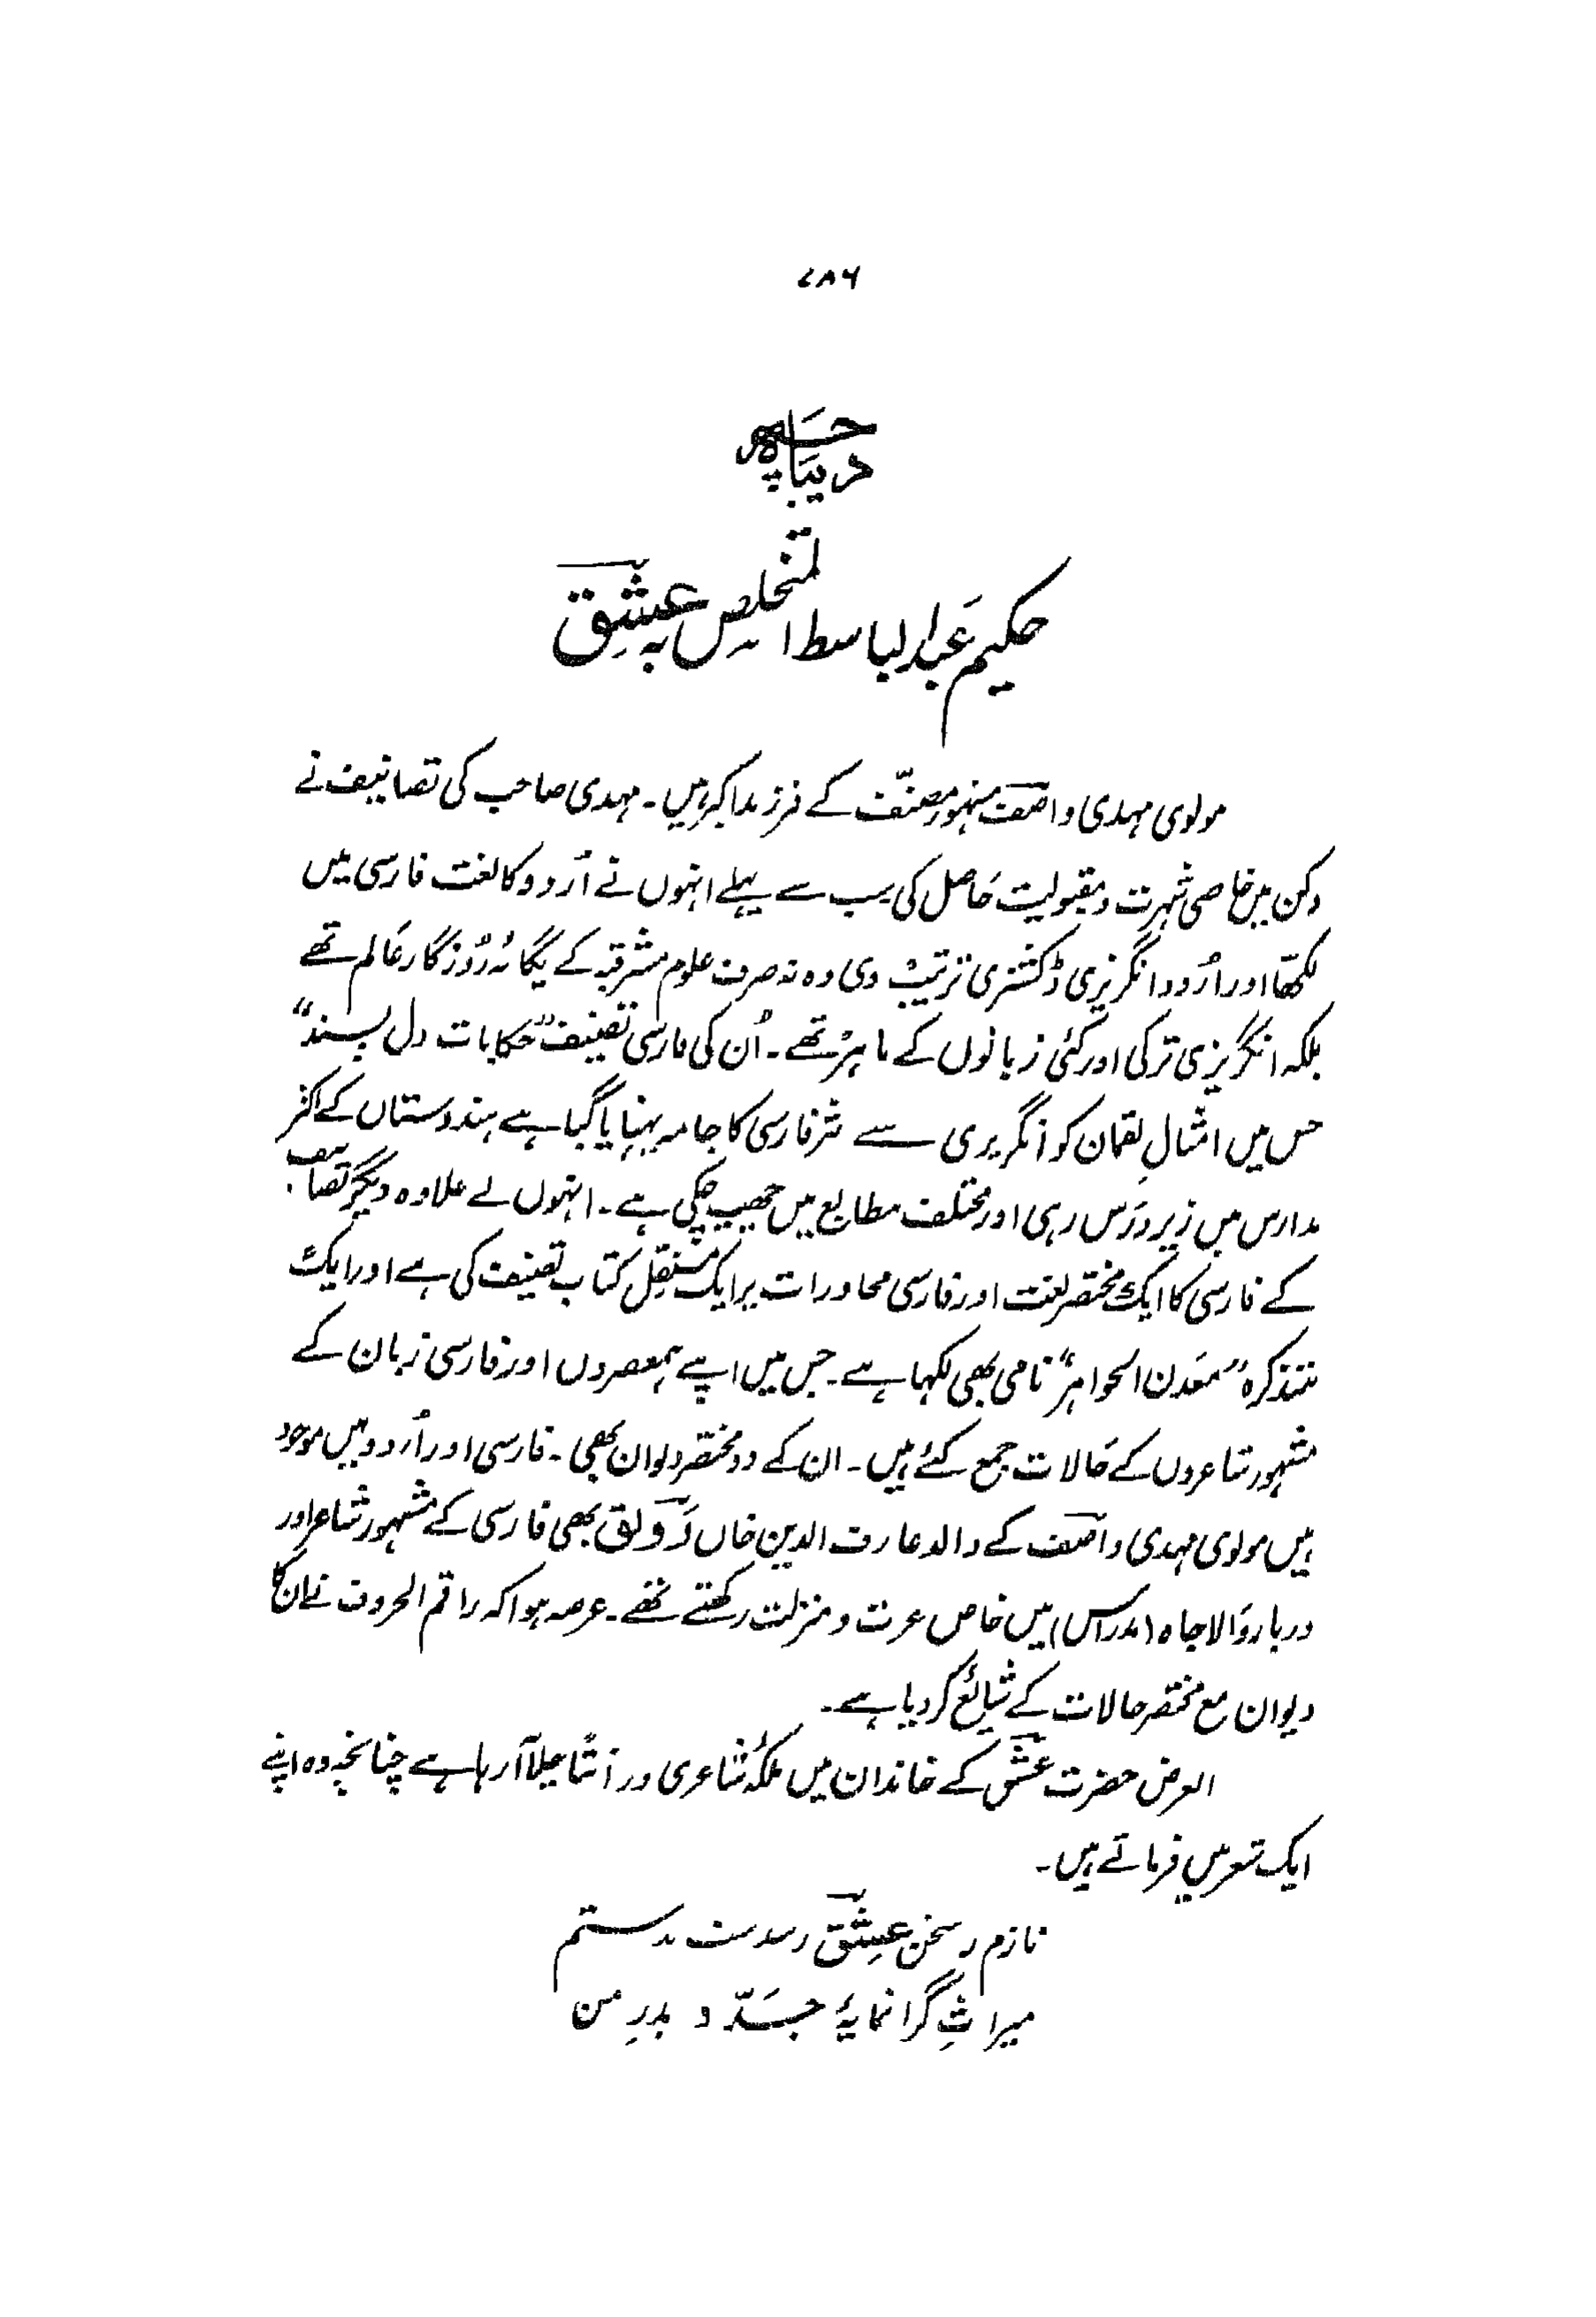 ۷۸۶
دیباچہ
حکیم عبدالباسط المتخلص بہ عشق
مولوی مہدی واصف مشہور مصنّف کے فرزند اکبر ہیں۔ مہدی صاحب کی تصانیف نے
دکن میں خاصی شہرت و مقبولیت حَاصل کی سب سے پہلے انہوں نے اُردو کا لغت فارسی میں
لکھّا اور اُردو انگریزی ڈکشنری ترتیب دی وہ نہ صرف علوم مشرقیہ کے یگانۂ رُوزگار عَالم تھے
بلکہ انگریزی ترکی اور کئی زبانوں کے ماہر تھے۔ اُن کی فارسی تصنیف "حکایات دل پسند"
جس میں امثالِ لقمان کو انگریزی سے نثر فارسی کا جامہ پہنایا گیا ہے ہندوستاں کے اکثر
مدارس میں زیر درَس رہی اور مختلف مطابع میں چھپ چکی ہے۔ انہوں نے علاوہ دیگر تصانیف
کے فارسی کا ایک مختصر لغت اور فارسی محاورات پر ایک مستقِل کتاب تصنیف کی ہے اور ایک
تذکرہ "معَدن الجواہر" نامی بھی لکہا ہے۔ جس میں اپنے ہمعصروں اور فارسی زبان کے
مشہور شاعروں کے حَالات جمع کئے ہیں۔ ان کے دو مختصر دیوان بھی۔ فارسی اور اُردو میں موجود
ہیں مولوی مہدی واصف کے والد عارف الدین خاں رَونق بھی فارسی کے مشہور شاعر اور
دربار وَالا جاہ (مدراس) میں خاص عزت و منزلت رکھتے تھے۔ عرصہ ہوا کہ راقم الحروف نے ان کا
دیوان مع مختصر حالات کے شائع کر دیا ہے۔
الغرض حضرت عشق کے خاندان میں ملکۂ شاعری وراثتاً چلا آ رہا ہے چنانچہ وہ اپنے
ایک شعر میں فرماتے ہیں۔
نازم بہ سخن عِشق رسیدست بدستم
میراثِ گرانمایۂ جَدّ و پدرِ من